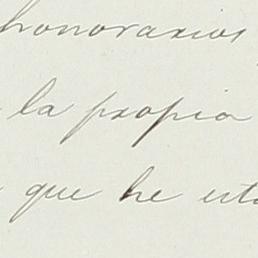 honorarios
la propia
que he esta